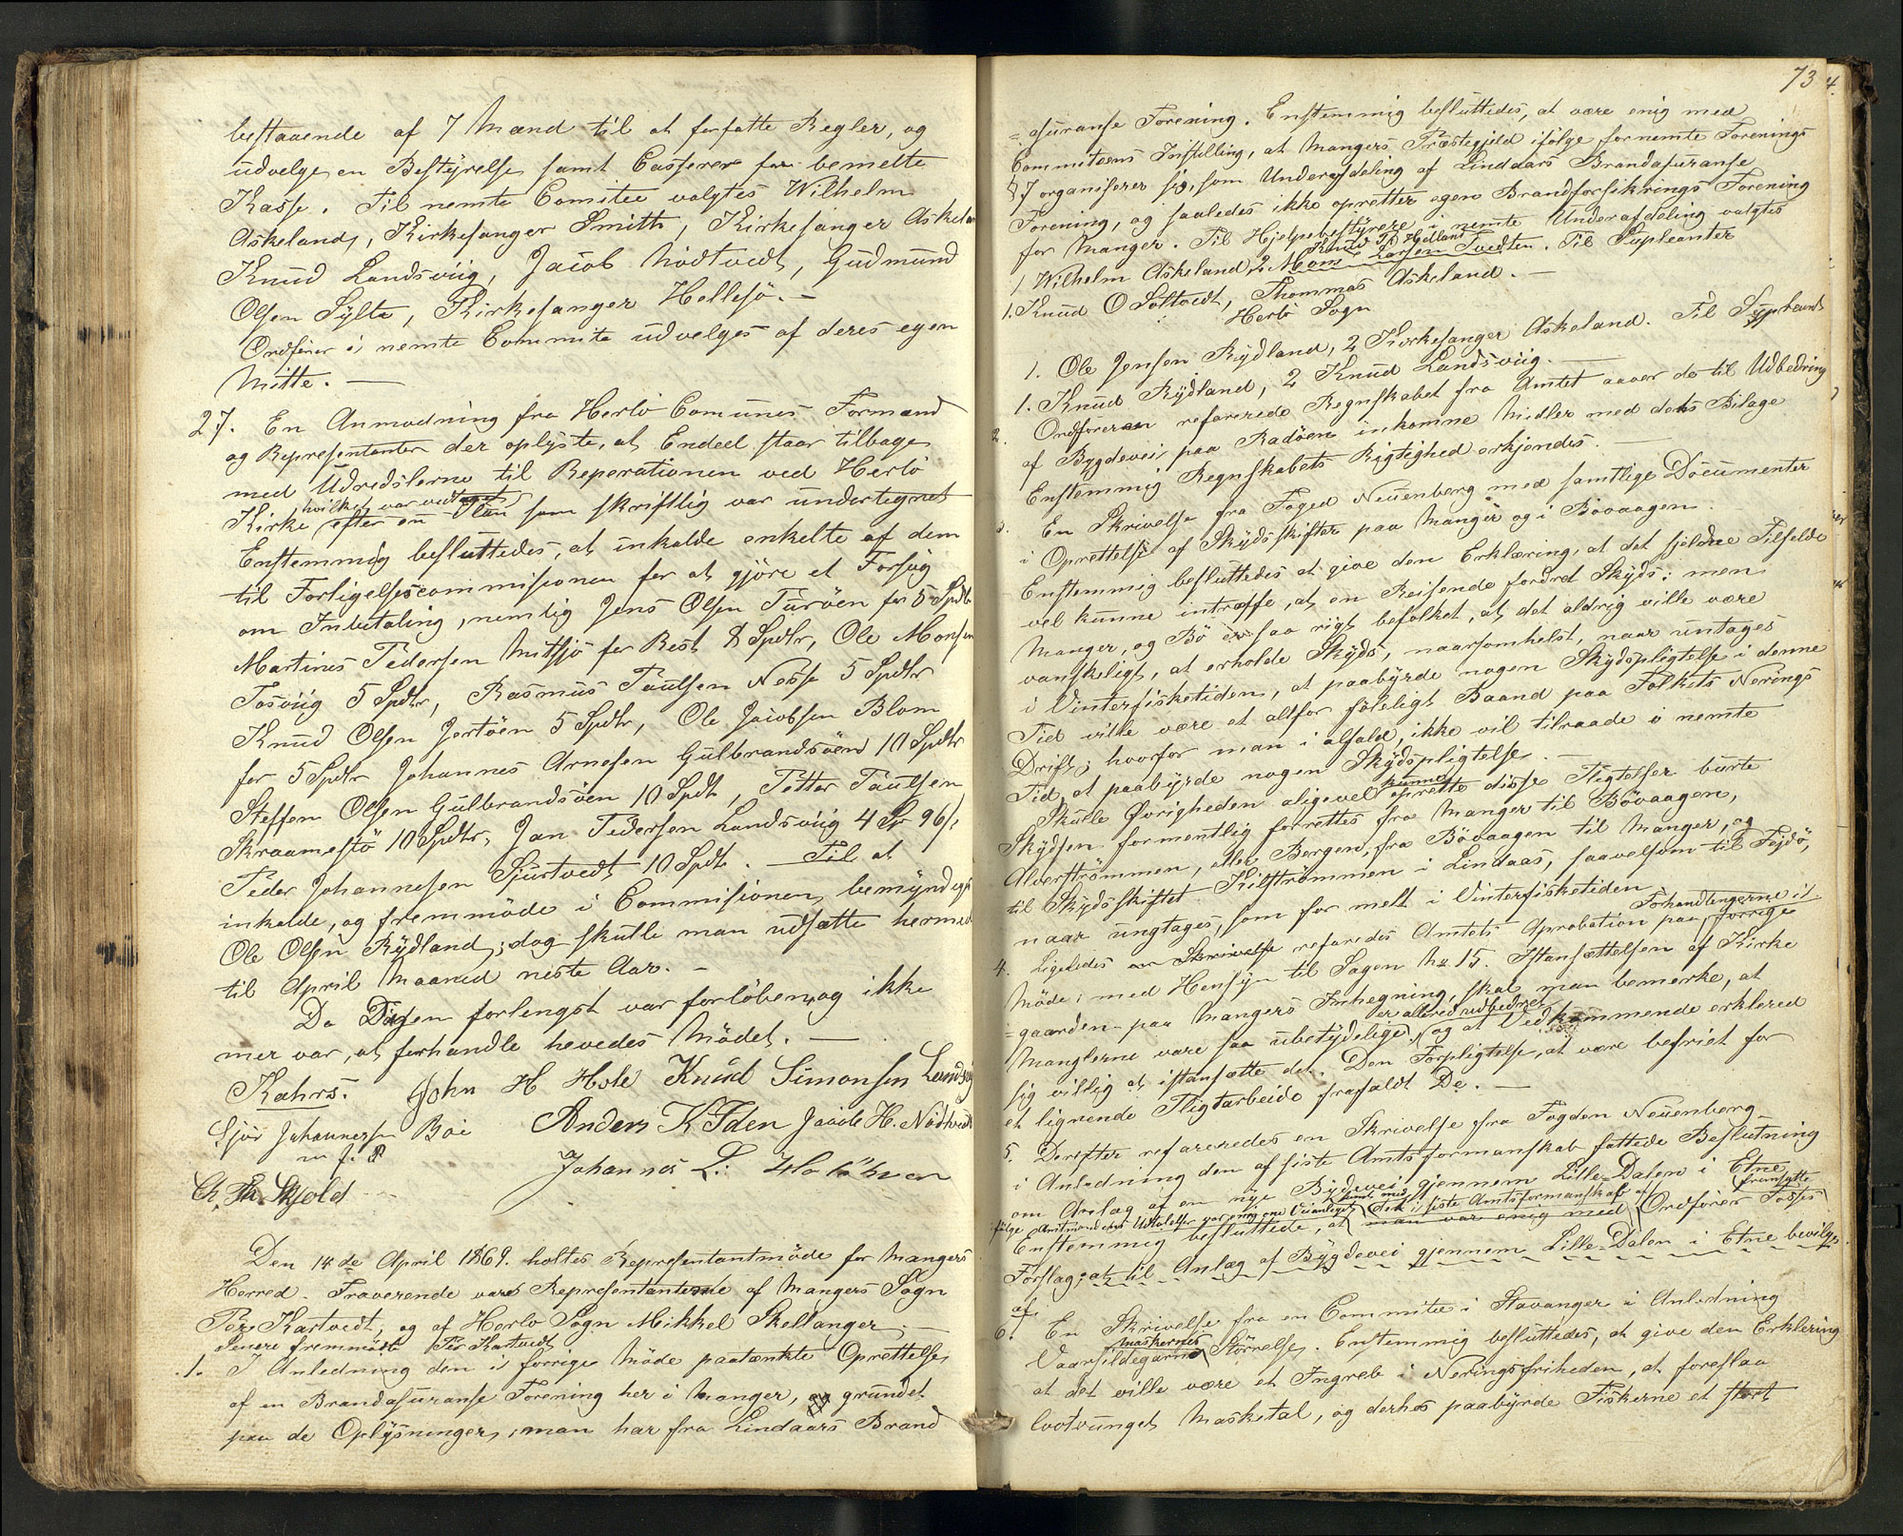 bestaaende af 7 Mænd til at forfatte Regler, og
udvelge en Bestÿrelse samt Casserer for bemelte
Kasse. Til nemte Comitee valgtes Wilhelm
Askeland, Kirkesanger Smith, Kirkesanger Askelan
Knud Landsviig, Jacob Nödtvedt, Gudmund
Olsen Sÿlte, Kirkesanger Hellesö. —
Ordförer i nemte Commite udvelges af deres egen
Mitte. —
27. En Anmodning fra Herlö Comunes Formænd
og Representanter der oplÿste, at Endeel staar tilbage
med Udredslerne til Reperationen ved Herlö
hvilket var vedtaget
Kirke efter en Plan som skriftlig var undertegnet
Enstemmig besluttedes, at inkalde enkelte af dem
til Forligelsescommisionen for at gjöre et Forsög
om Inbetaling, nemlig Jens Olsen Turöen for 5 Spdlr
Martines Pedersen Mitsjö for Rest 2 Spdlr, Ole Monsen
Tosviig 5 Spdlr, Rasmus Paulsen Nesse 5 Spdlr
Knud Olsen Jertöen 5 Spdlr, Ole Jacobsen Blom
for 5 Spdlr Johannes Arnesen Gulbrandsöen 10 Spdlr
Steffen Olsen Gulbrandsöen 10 Spdlr, Petter Paulsen
Skraamestö 10 Spdlr, Jan Pedersen Landsviig 4 Sp 96 s
Peder Johannesen Sjurtvedt 10 Spdlr. — Til at
inkalde, og fremmöde i Commisionen, bemÿndiges
Ole Olsen Rÿdland; dog skulle man udsætte hermed
til April Maaned neste Aar. —
Da Dagen forlengst var forlöben, og ikke
mer var, at forhandle hevedes Mödet. —
Kahrs. John H Hole Knud Simonsen Landsvig
Sjur Johannessen Böe Anders K Iden Jacob H. Nödtvedt
m f. P
Johannes L:
Ch. Th. Skjold
Den 14de April 1869. holtes Representantmöde for Mangers
Herred. Fraverende vare Representanterne af Mangers Sogn
Per Kartvedt, og af Herlö Sogn Mikkel Skellanger. —
Senere fremmödte Per Kartvedt
1. I Anledning den i forrige Möde paatænkte Oprettelse
af en Brandasuranse Forening her i Manger, og grundet
paa de Oplÿsninger, man har fra Lindaars Brand
73
=asuranse Forening. Enstemmig besluttedes, at være enig med
Commiteens Instilling, at Mangers Præstegjeld ifölge fornemte Forenings
§7 organiserer sig, som Underafdeling af Lindaars Brandasuranse
Forening, og saaledes ikke opretter egen Brandforsikrings Forening
for Manger. Til Hjelpebestÿrere i nemte Underafdeling valgtes
Knud P Hjelland
1 Wilhelm Askeland 2 Mons Larsen Tvedten. Til Supleanter
1. Knud O Soltvedt, Thommas Askeland. —
Herlö Sogn
1. Ole Jensen Rÿdland, 2 Kirkesanger Askeland. Til Suppleants
1. Knud Rÿdland, 2 Knud Landsviig. —
2. Ordföreren refererede Regnskabet fra Amtet aaver de til Udbedring
af Bÿgdevei paa Radöen inkomne Midler med dets Bilage
Enstemmig Regnskabets Rigtighed erkjendes. —
3. En Skrivelse fra Foged Neuenberg med samtlige Documenter
i Oprettelse af Skÿdsskifter paa Manger og i Bövaagen.
Enstemmig besluttedes at give den Erklæring, at det sjeldne Tilfelde
vel kunne intræffe, at en Reisende fordret Skÿds; men
Manger, og Bö er saa rigt befolket, at det aldrig ville være
vanskeligt, at erholde Skÿds, naarsomhelst, naar untages
i Vinterfisketiden, at paabÿrde nogen Skÿdspligtelse i denne
Tid ville være et altfor föleligt Baand paa Folkets Nerings
Drift; hvorfor man i alfald, ikke vil tilraade i nemte
Tid, at paabÿrde nogen Skÿdspligtelse. —
Skulle Övrigheden aligevel kunne oprette disse Pligtelser burte
Skÿdsen formentlig forrettes fra Manger til Bövaagen,
Alverströmmen, eller Bergen, fra Bövaagen til Manger, og
til Skÿdsskiftet Kilströmmen i Lindaas, saavelsom til Fejdö,
naar ungtages, som for melt i Vinterfisketiden
Forhandlingerne it
4. Ligeledes en Skrivelse referedes Amtets Aprobation paa forrige
Möde; med Hensÿn til Sagen No 15. Istansættelsen af Kirke
=gaarden paa Mangers Inhegning, skal man bemerke, at
er allered udbedret
Manglerne vare saa ubetÿdelige, og at Vedkommende erklered
sig villig at istansætte det. Den Forpligtelse, at være befriet for
et lignende Pligtarbeide frafaldt De. —
5. Derefter refereredes en Skrivelse fra Fogden Neuenberg
i Anledning den af siste Amtsformanskab fattede Beslutning
om Anlæg af en nÿe Bÿdevei gjennem Lille-Dalen i Etne
Enstemmig besluttede, at man var enig med Ordförer Fosses
Forslag, at til Anlæg af Bÿgdevei gjennem Lille-Dalen i Etne bevilges
6. En Skrivelse fra en Committee i Stavanger i Anledning
maskernes
Vaarsildegarns Störrelse. Enstemmig besluttedes, at give den Erklering
at det ville være et Ingreb i Neringsfriheden, at foreslaa
lovtvunget Masketal, og derhos paabÿrde Fiskerne et stort